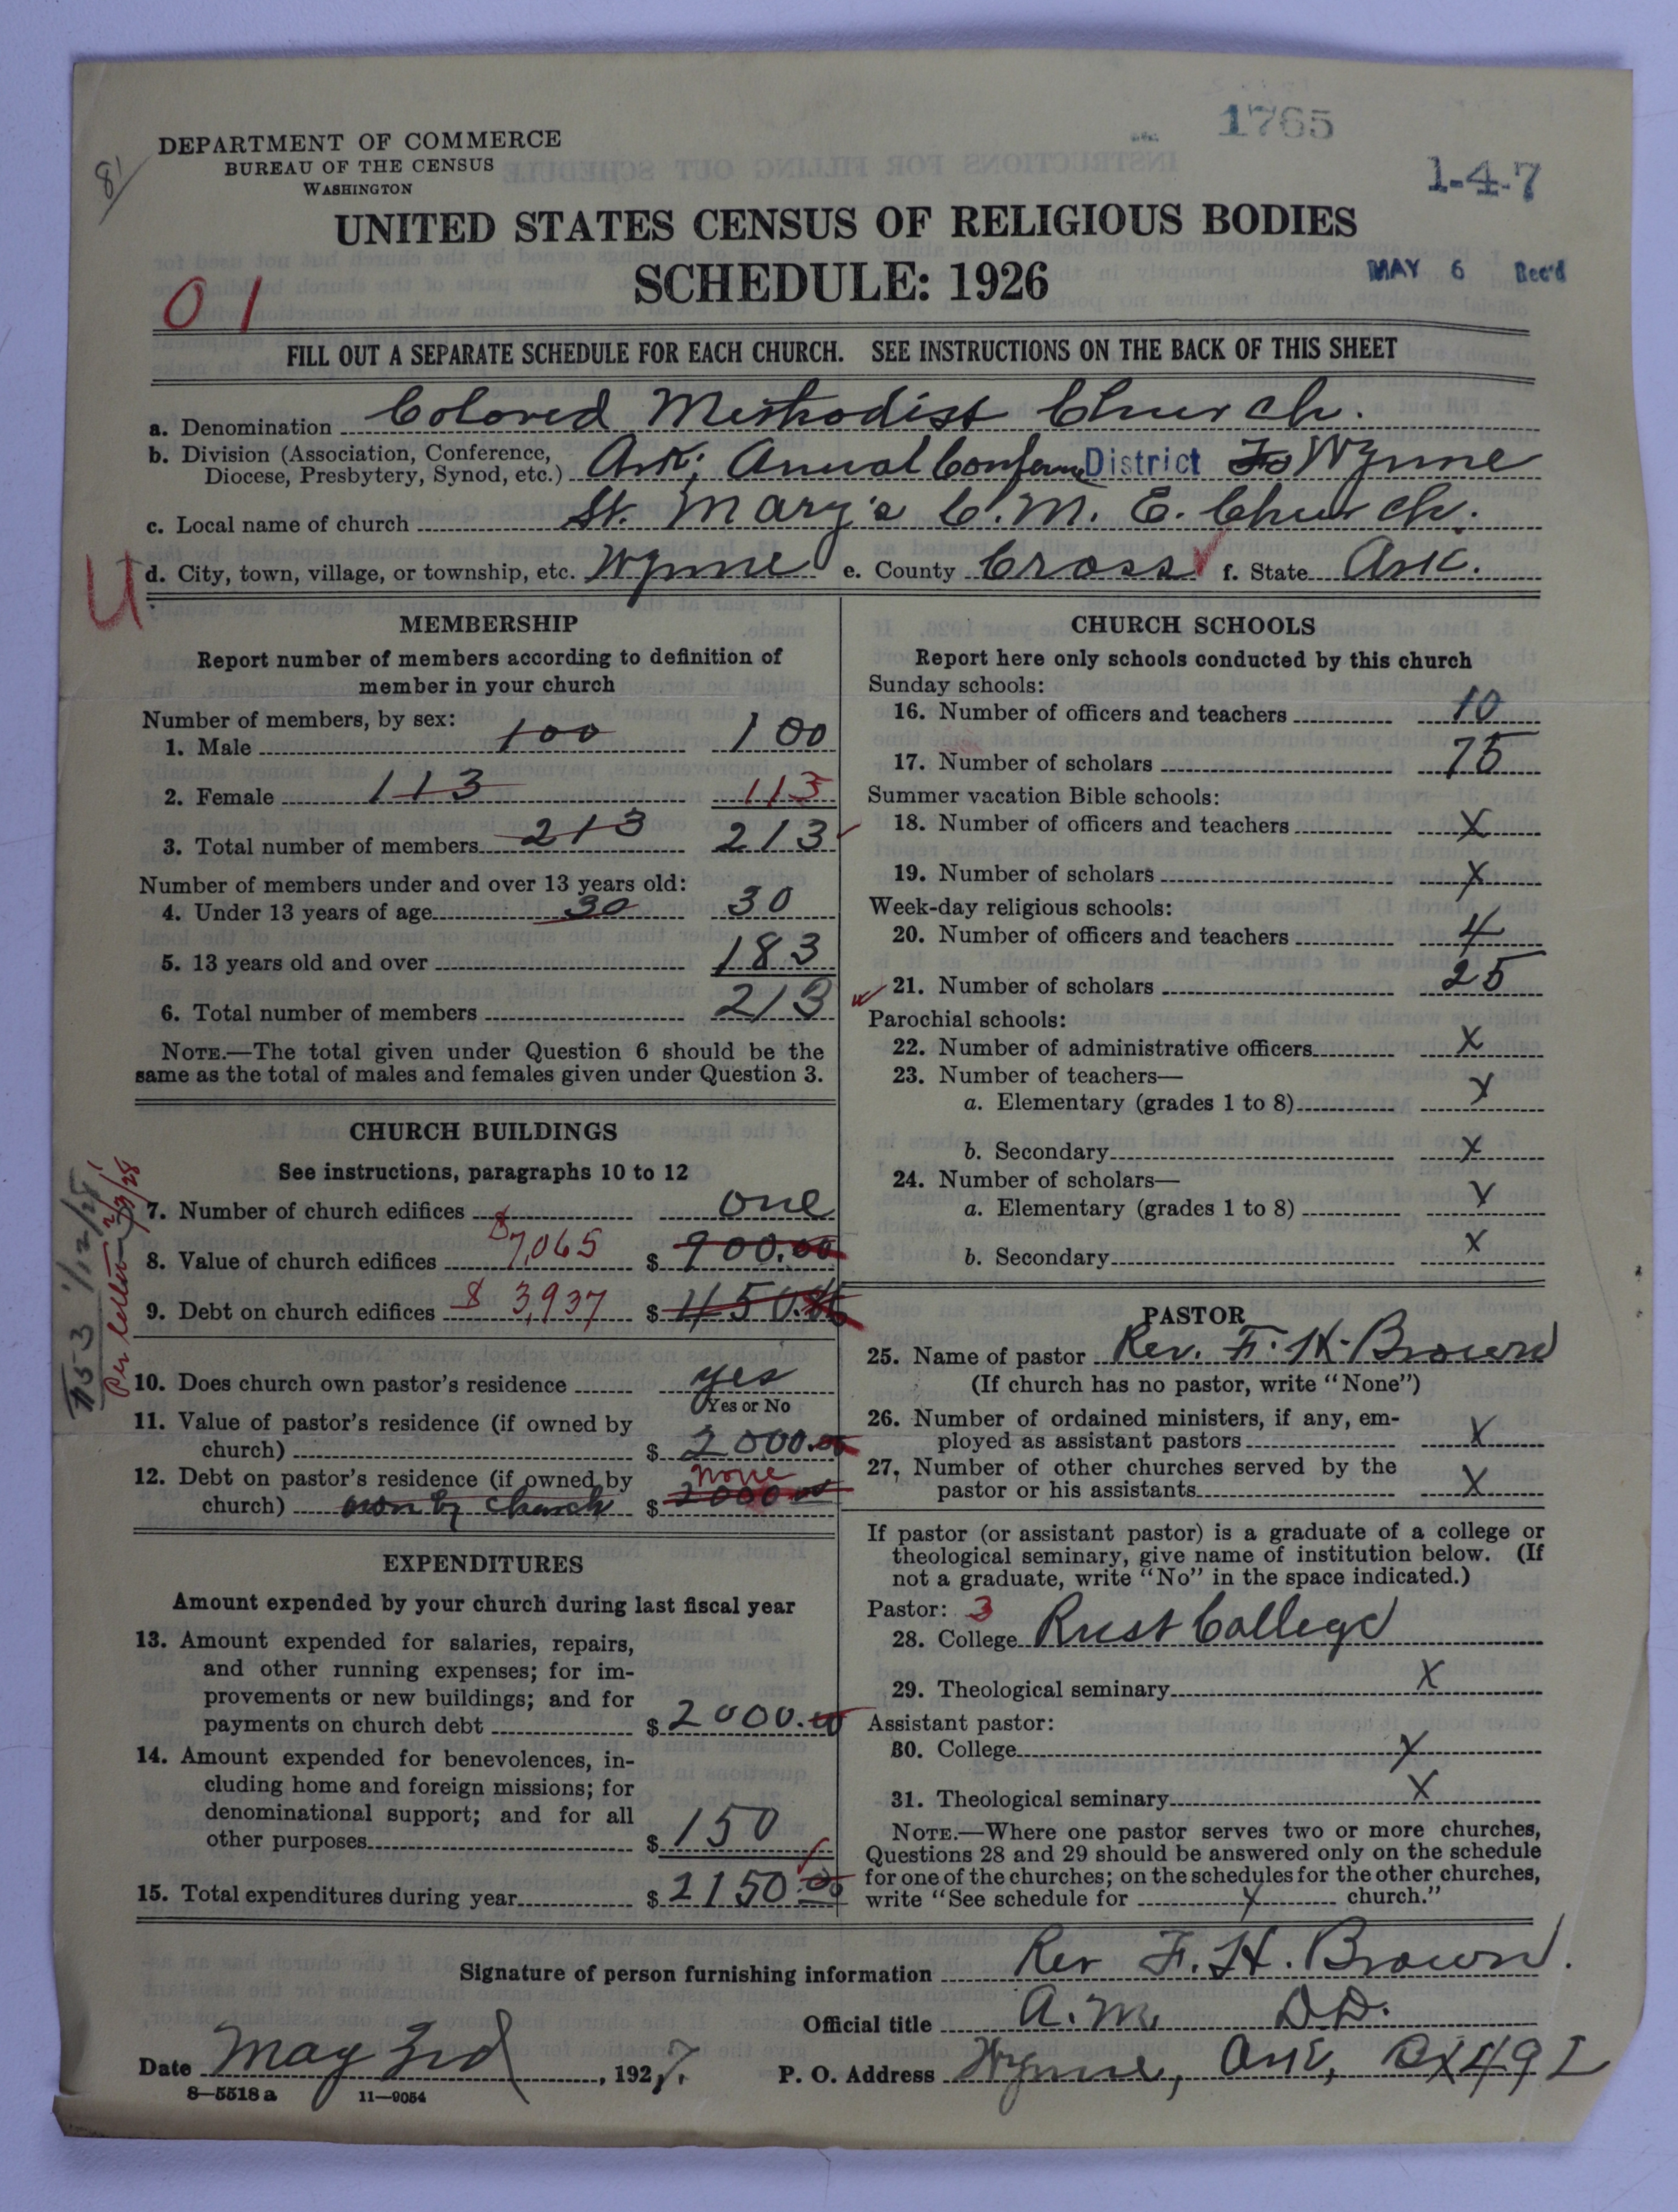 1765
DEPARTMENT OF COMMERCE
BUREAU OF THE CENSUS
WASHINGTON
1-4-7
UNITED STATES CENSUS OF RELIGIOUS BODIES
SCHEDULE: 1926
MAY 6 Rec'd
01
FILL OUT A SEPARATE SCHEDULE FOR EACH CHURCH. SEE INSTRUCTIONS ON THE BACK OF THIS SHEET
a. Denomination Colored Methodist Church.
b. Division (Association, Conference, Diocese, Presbytery, Synod, etc.) Ark; Annual Conferen District Wynne
c. Local name of church St. Mary's C. M. E. Church.
U
d. City, town, village, or township, etc. Wynne e. County Cross f. State Ark.
MEMBERSHIP
Report number of members according to definition of
member in your church
Number of members, by sex:
1. Male 100 100
2. Female 113 113
3. Total number of members 213 213
Number of members under and over 13 years old:
4. Under 13 years of age 30 30
5. 13 years old and over 183
6. Total number of members 213
NOTE.—The total given under Question 6 should be the
same as the total of males and females given under Question 3.
CHURCH BUILDINGS
See instructions, paragraphs 10 to 12
7. Number of church edifices one
8. Value of church edifices $7,065 $ 900.00
9. Debt on church edifices $ 3,937 $ 450.
Per letter
10. Does church own pastor's residence yes
Yes or No
11. Value of pastor's residence (if owned by
church) $ 2000.00
12. Debt on pastor's residence (if owned by none
church) own by church $ 2000.00
EXPENDITURES
Amount expended by your church during last fiscal year
13. Amount expended for salaries, repairs,
and other running expenses; for im-
provements or new buildings; and for
payments on church debt $ 2000.00
14. Amount expended for benevolences, in-
cluding home and foreign missions; for
denominational support; and for all
other purposes $ 150
15. Total expenditures during year $ 2150.00
CHURCH SCHOOLS
Report here only schools conducted by this church
Sunday schools:
16. Number of officers and teachers 10
17. Number of scholars 75
Summer vacation Bible schools:
18. Number of officers and teachers X
19. Number of scholars X
Week-day religious schools:
20. Number of officers and teachers 4
21. Number of scholars 25
Parochial schools:
22. Number of administrative officers X
23. Number of teachers—
a. Elementary (grades 1 to 8) X
b. Secondary X
24. Number of scholars—
a. Elementary (grades 1 to 8) X
b. Secondary X
PASTOR
25. Name of pastor Rev. F. H. Brown
(If church has no pastor, write "None")
26. Number of ordained ministers, if any, em-
ployed as assistant pastors X
27. Number of other churches served by the
pastor or his assistants X
If pastor (or assistant pastor) is a graduate of a college or
theological seminary, give name of institution below. (If
not a graduate, write "No" in the space indicated.)
Pastor: 3
28. College Rust College
29. Theological seminary X
Assistant pastor:
30. College X
31. Theological seminary X
NOTE.—Where one pastor serves two or more churches,
Questions 28 and 29 should be answered only on the schedule
for one of the churches; on the schedules for the other churches,
write "See schedule for X church."
Signature of person furnishing information Rev F. H. Brown.
Official title A.M. D.D.
Date May 3rd, 1927. P. O. Address Wynne, Ark, Bx 492
8—5518a 11—9054